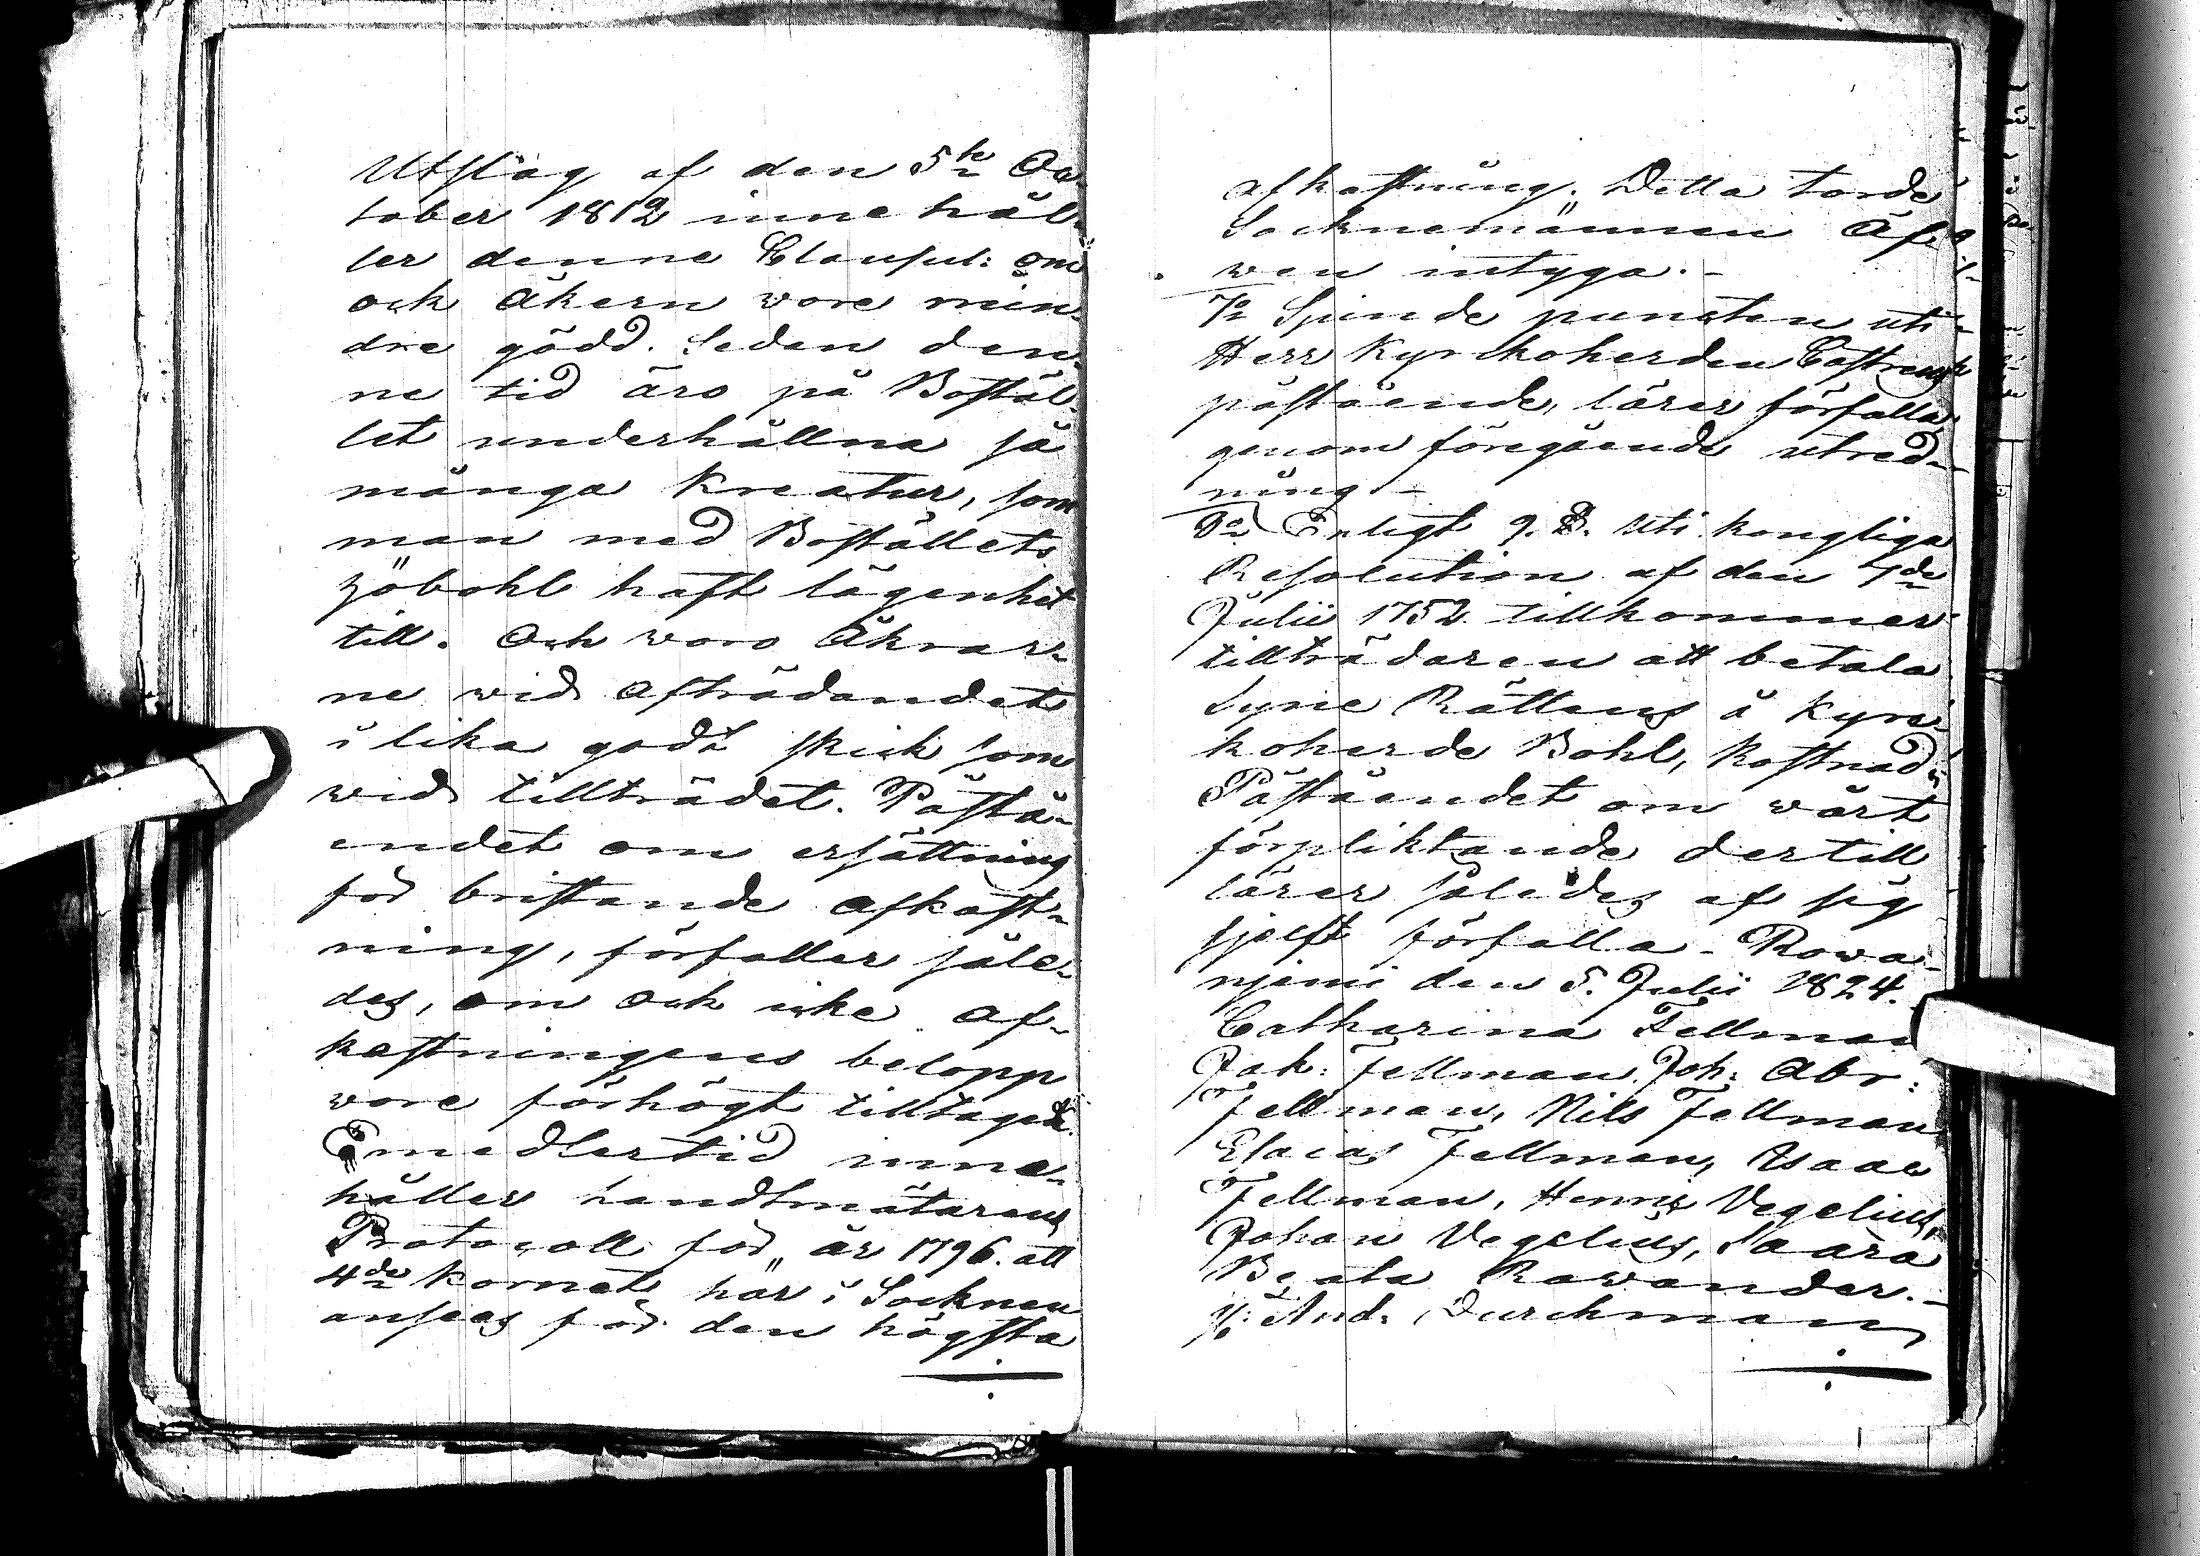 Utslag af den 5te Oc-
tober 1812 inne hål-
ler denne Clausul: om
ock åkern vore min-
dre gödd. Sedan den-
ne tid äro på Bostäl-
let underhållna så
många Kreatur, som
man med Boställets
höbohl haft lägenhet
till. Och woro Åkrar-
ne wid afträdandet
i lika godt skick som
wid tillträdet. Påstå-
endet om ersättning
för bristande afkast-
ning, förfaller såle-
des, om ock icke af-
kastningens belopp
vore förhögt tilltaget.
Emedlertid inne-
håller Landtmätarens
Protocoll för år 1796. att
4de Kornet här i Socknen
anseas för den högsta
afkastning. Detta torde
Socknemännen Äf-
wen intyga.-
7o Sjunde puncten uti
Herr Kyrckoherden Castrens
påstående, lärer förfalla
genom föregående utred-
ning -
8o Enligt 9. §. Uti Kongliga
Resolution af den 7de
Julii 1752 tillkommer
tillträdaren att betala
Syne Rättens å Kyrc-
koherde Bohl, Kostnad
Påståendet om wårt
förpliktande dertill
lärer således af sig
sjelft förfalla - Rowa-
njemi den 5. Julii 1824.
Catharina Fellman
Jak: Fellman. Joh: Abr:
Fellman, Nils Fellman
Esaias Fellman, Isaac
Fellman, Henric Vegelius,
Johan Vegelius, Saara
Beata Rawander.-
And. Durchman